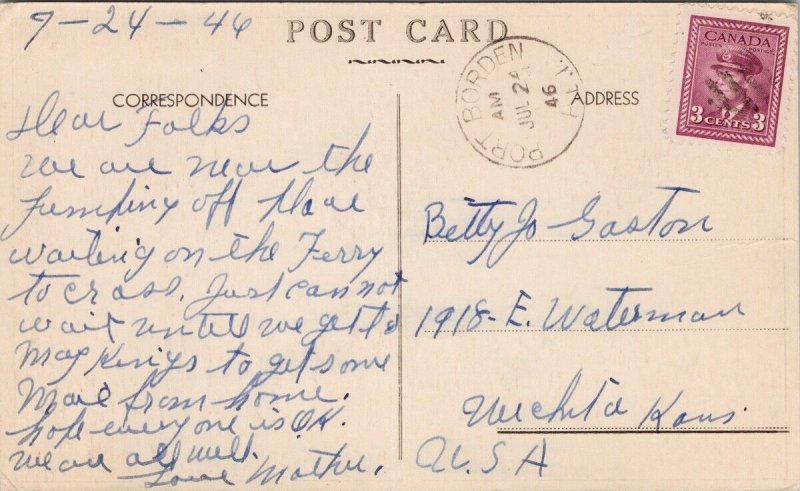 7-24-46
POST CARD
CORRESPONDENCE
Dear Folks
We are near the
Jumping off place
waiting on the Ferry
to cross. Just cannot
wait until we get to
Mag Kings to get some
Mail from home.
hope everyone is OK.
we are all well.
Love Mother.
PORT BORDEN P.E.I.
AM
JUL 24
46
CANADA
POSTES POSTAGE
3 CENTS 3
ADDRESS
Betty Jo Gaston
1918-E. Waterman
Wichita Kans.
U.S.A